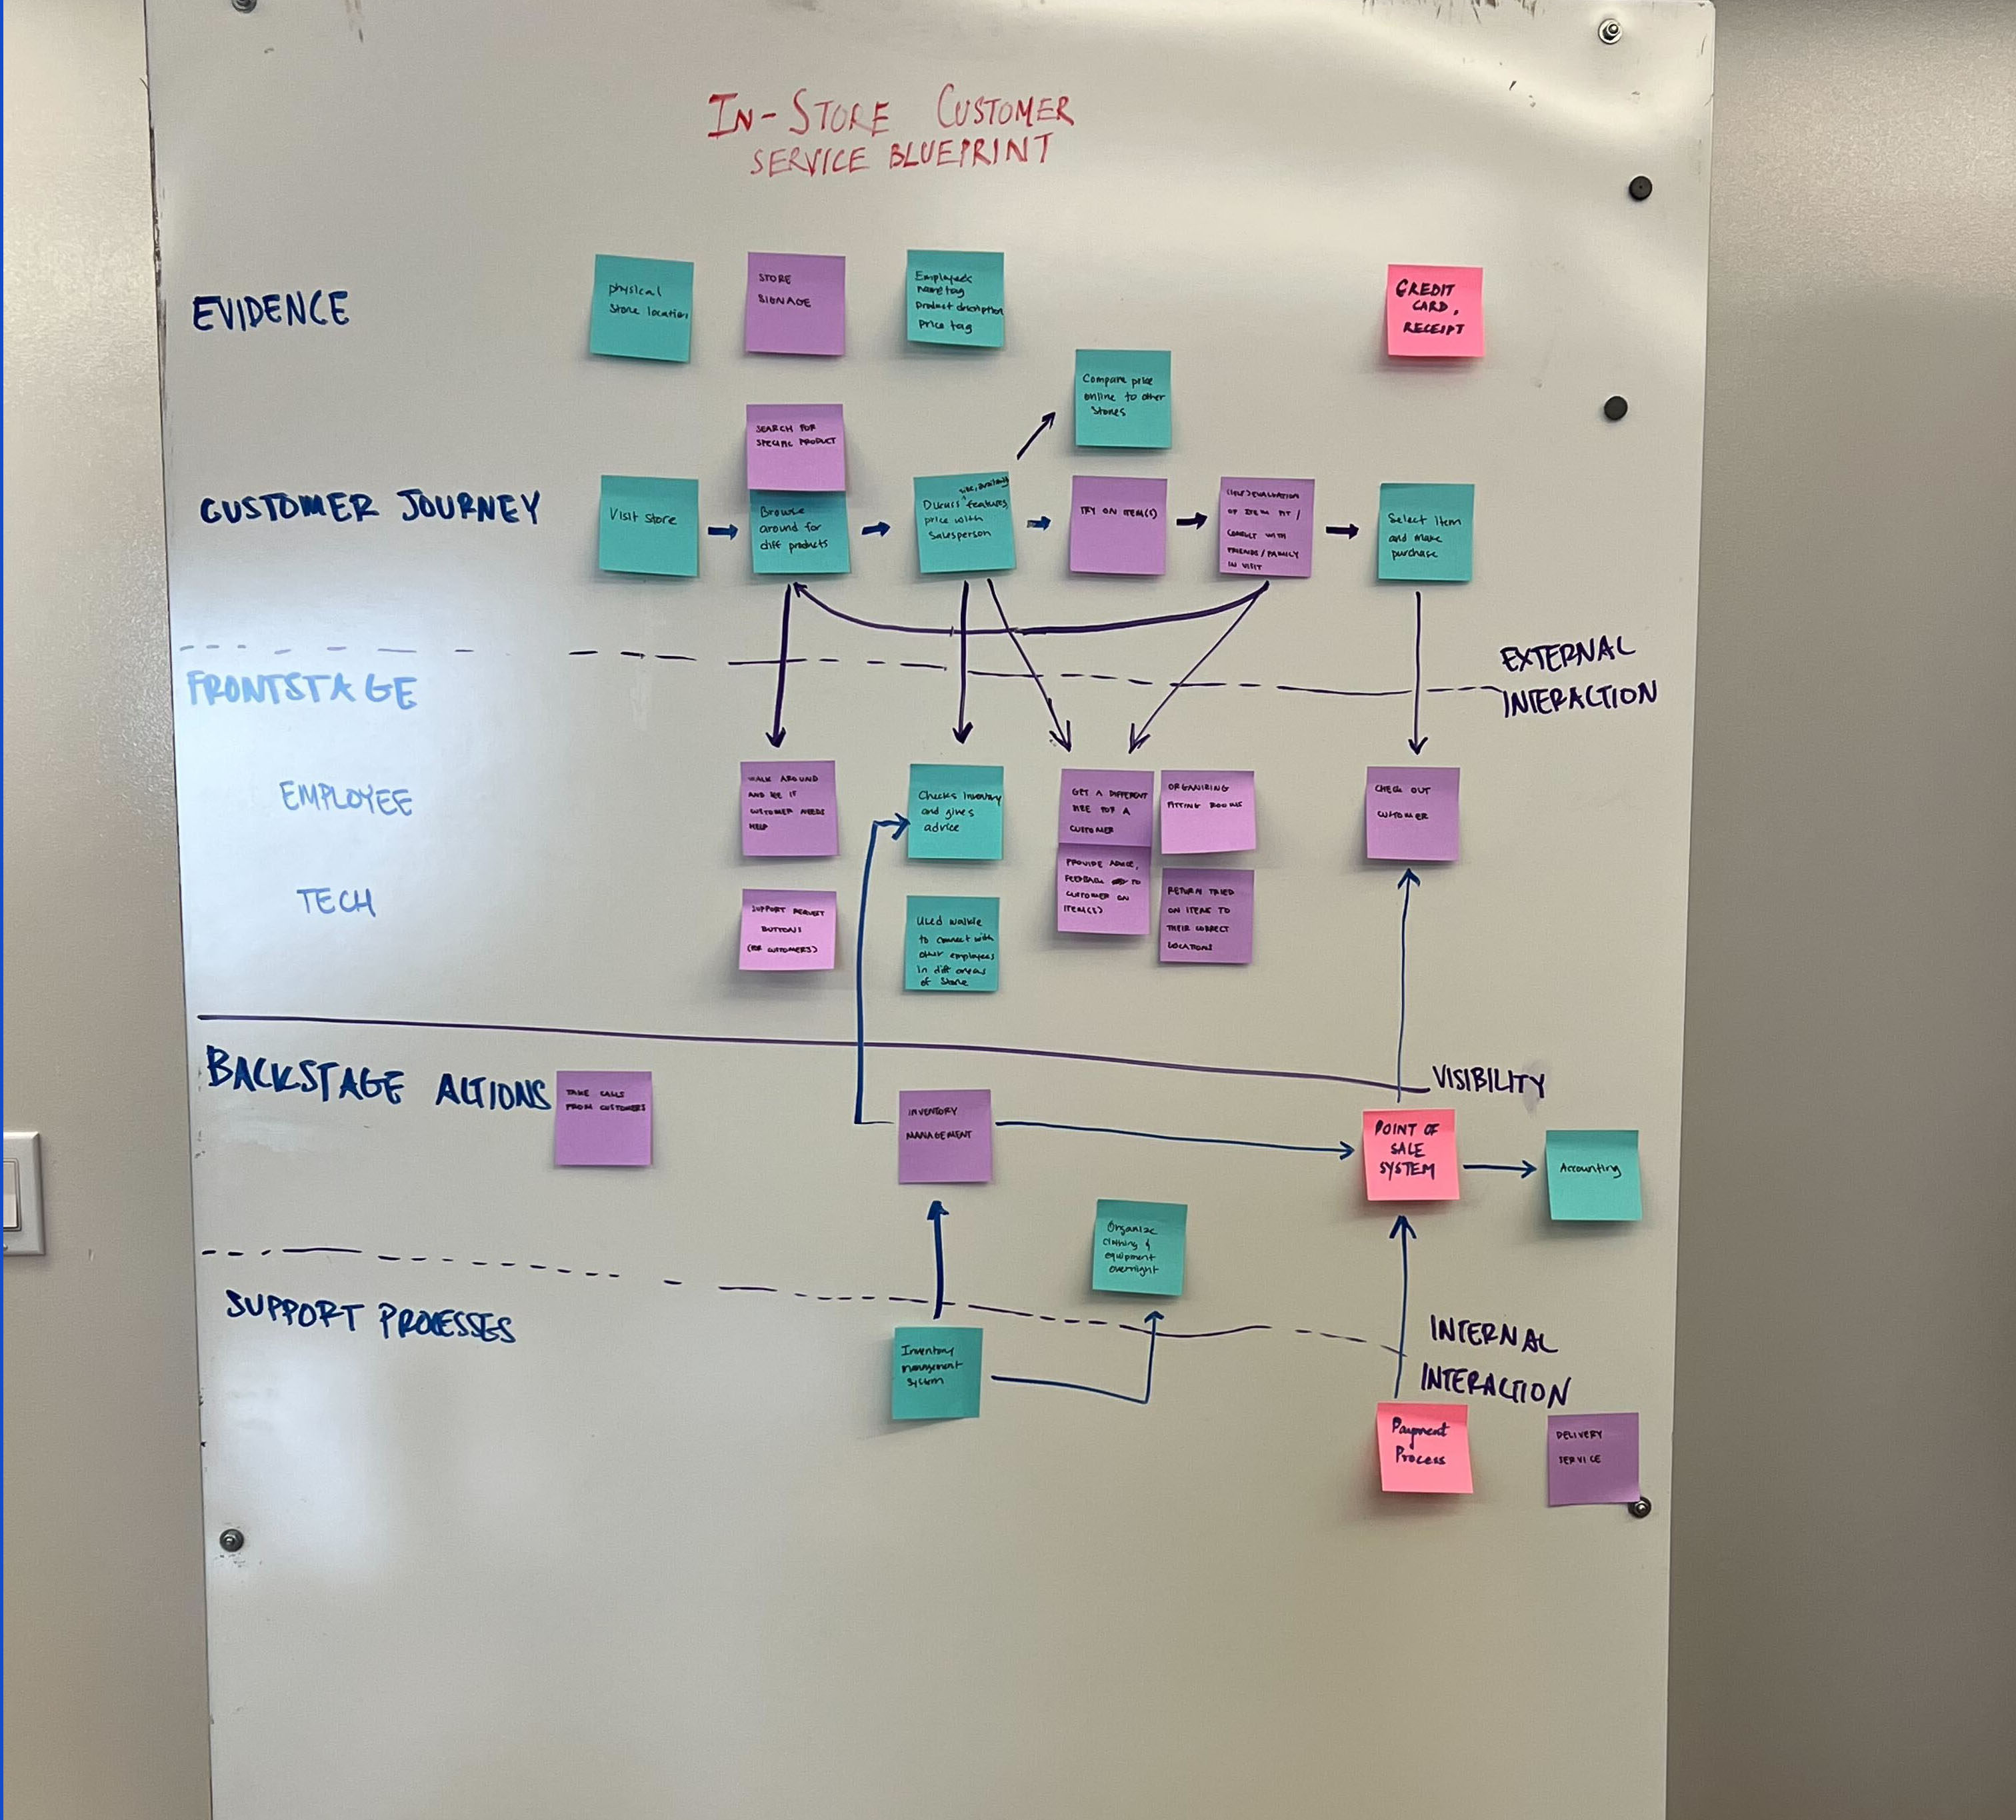 IN-STORE CUSTOMER
SERVICE BLUEPRINT
EVIDENCE
physical
store location
STORE
SIGNAGE
Employee's
name tag
product description
price tag
CREDIT
CARD,
RECEIPT
Compare price
online to other
stores
SEARCH FOR
SPECIFIC PRODUCT
CUSTOMER JOURNEY
Visit Store
Browse
around for
diff products
size, availability
Discuss features,
price with
Salesperson
TRY ON ITEM(S)
(SELF) EVALUATION
OF ITEM FIT /
CONSULT WITH
FRIENDS / FAMILY
IN VISIT
Select item
and make
purchase
EXTERNAL
INTERACTION
FRONTSTAGE
EMPLOYEE
WALK AROUND
AND SEE IF
CUSTOMER NEEDS
HELP
Checks inventory
and gives
advice
GET A DIFFERENT
SIZE FOR A
CUSTOMER
ORGANIZING
FITTING ROOMS
CHECK OUT
CUSTOMER
TECH
SUPPORT REQUEST
BUTTONS
(FOR CUSTOMERS)
Used walkie
to connect with
other employees
in diff areas
of store
PROVIDE ADVICE,
FEEDBACK TO
CUSTOMER ON
ITEM(S)
RETURN TRIED
ON ITEMS TO
THEIR CORRECT
LOCATIONS
VISIBILITY
BACKSTAGE ACTIONS
TAKE CALLS
FROM CUSTOMERS
INVENTORY
MANAGEMENT
POINT OF
SALE
SYSTEM
Accounting
Organize
clothing &
equipment
overnight
SUPPORT PROCESSES
Inventory
management
system
INTERNAL
INTERACTION
Payment
Process
DELIVERY
SERVICE